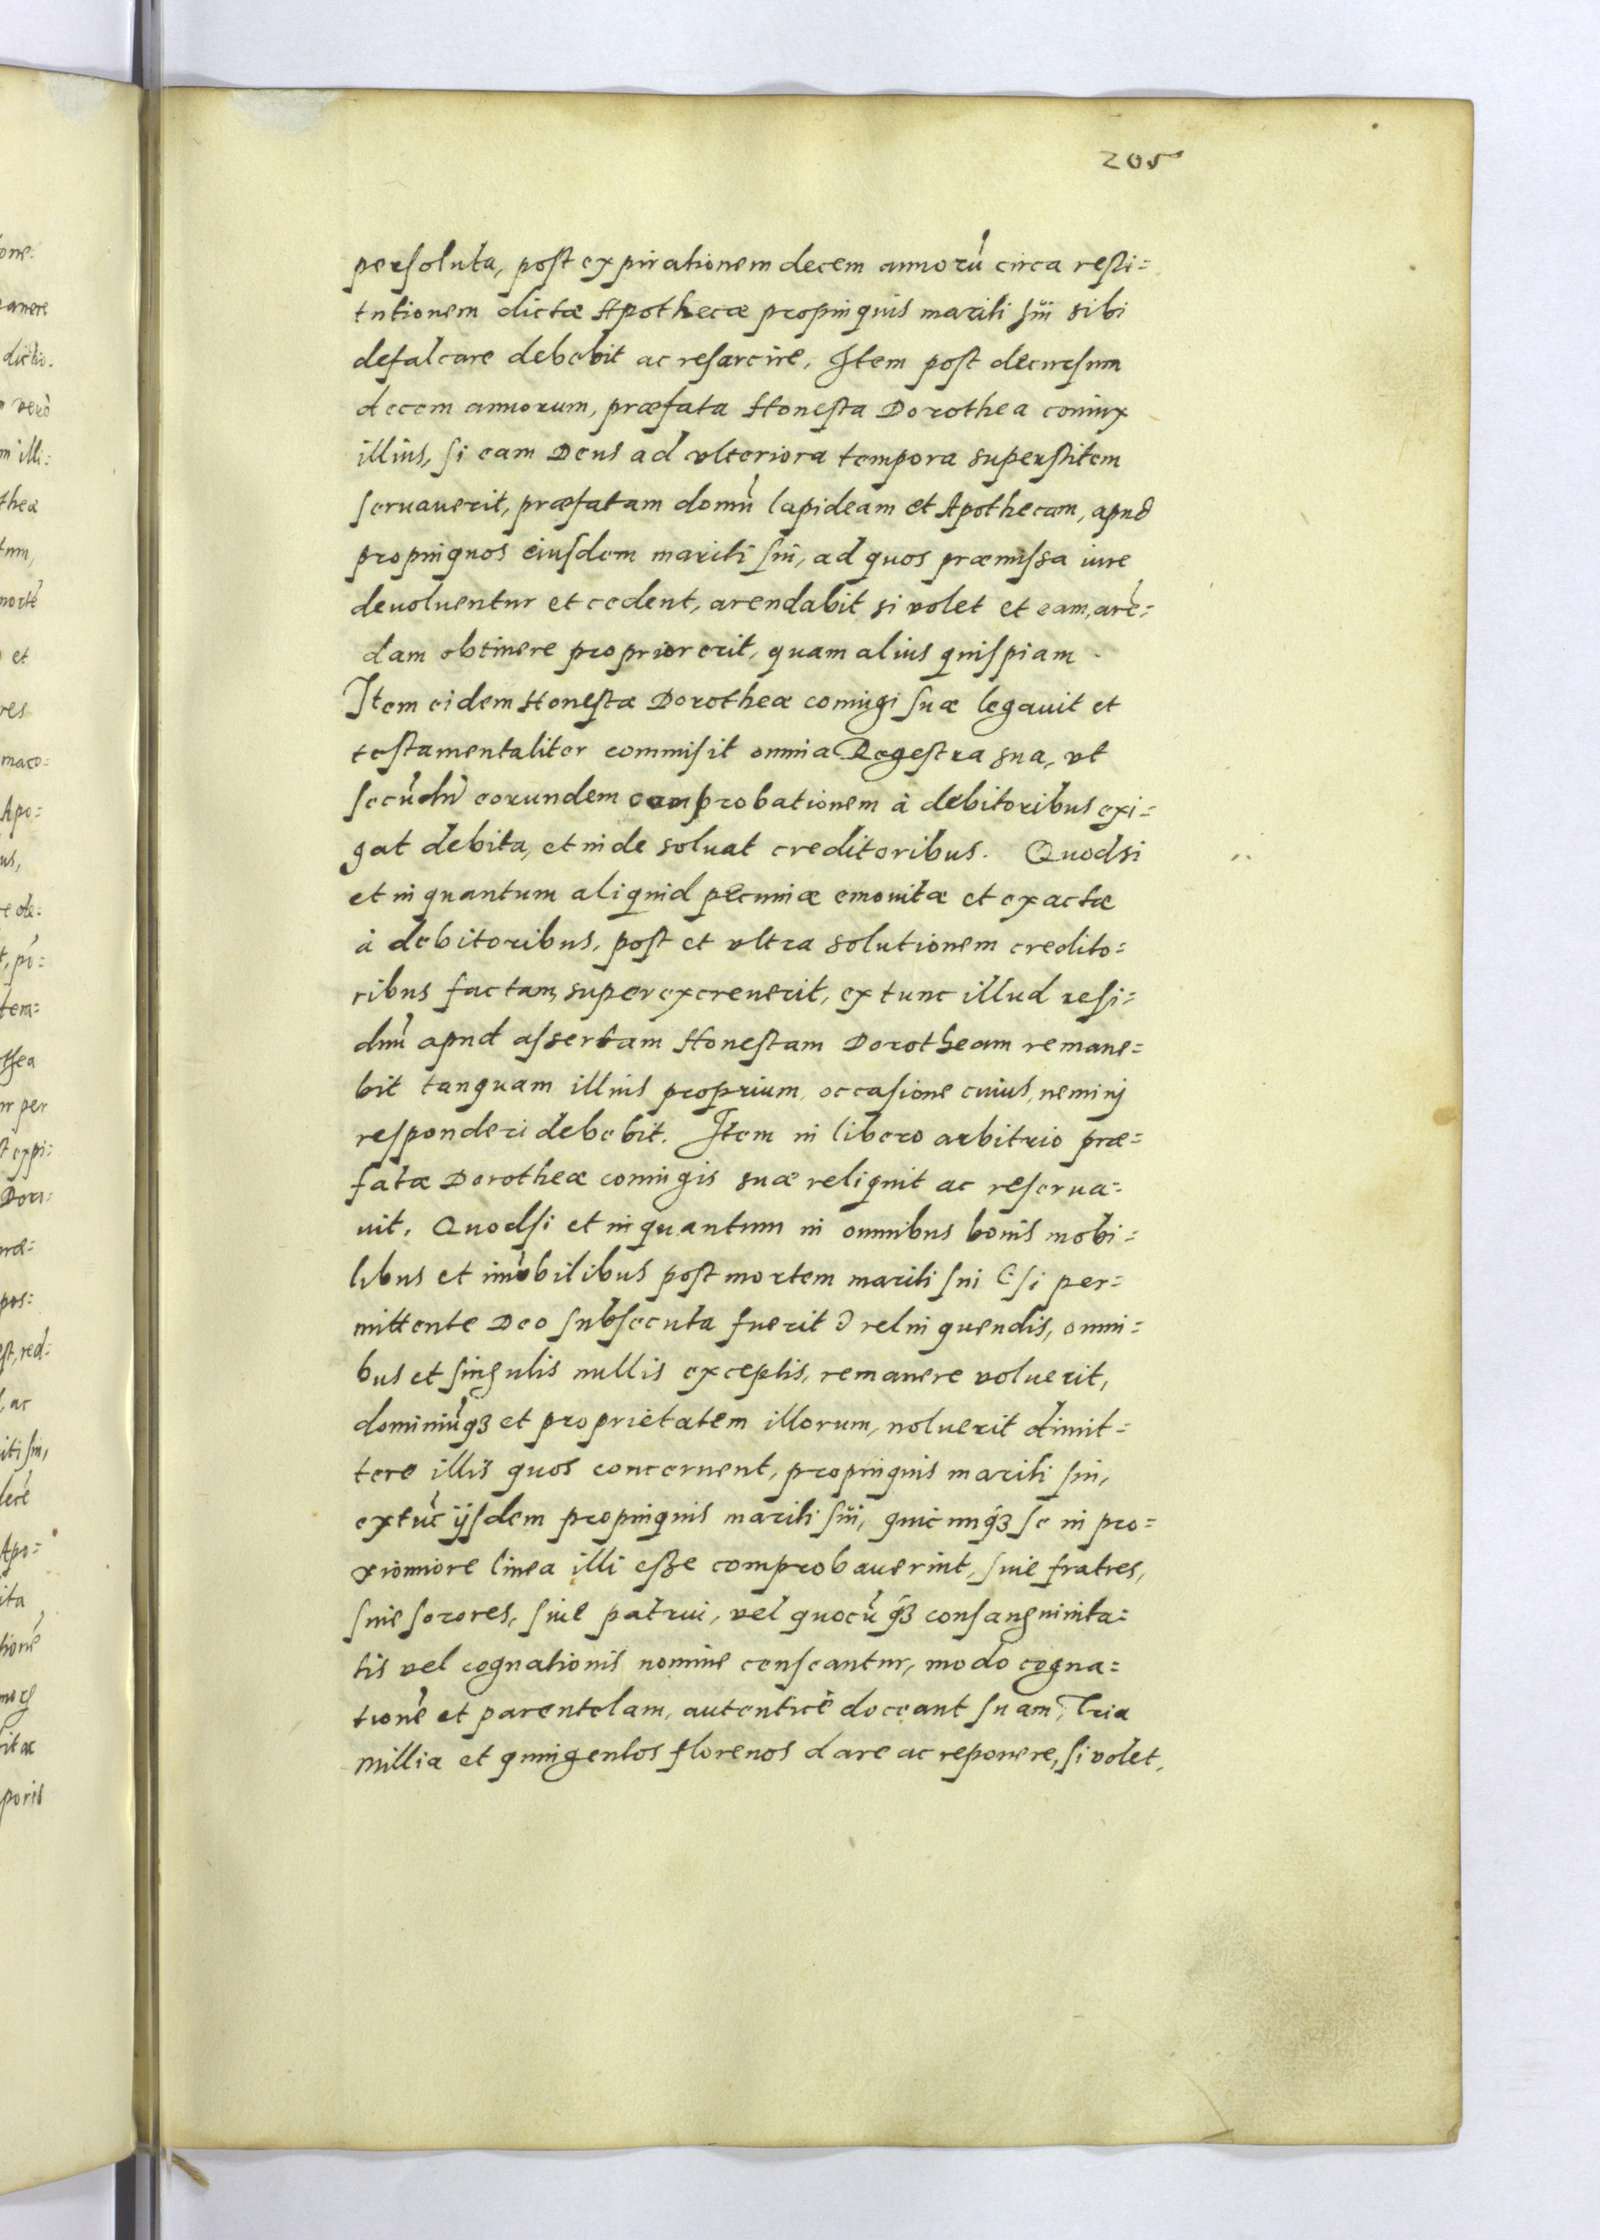 205
persoluta, post expirationem decem annorũ circa resti=
tutionem dictæ Apothecæ propinquis mariti sui sibi
defalcare debebit ac resarcire. Item post decursum
decem annorum, præfata Honesta Dorothea coniux
illius, si eam Deus ad vlteriora tempora superstitem
seruauerit, præfatam domũ lapideam et Apothecam, apud
propinquos eiusdem mariti sui, ad quos præmissa iure
deuoluentur et cedent, arendabit si volet et eam, arẽ=
dam obtinere proprior erit, quam alius quispiam.
Item eidem Honestæ Dorotheæ coniugi suæ legauit et
testamentaliter commisit omnia Regestra sua, vt
secũdũ eorundem comprobationem à debitoribus exi=
gat debita, et inde soluat creditoribus. Quodsi
et in quantum aliquid pecuniæ emonitæ et exactæ
à debitoribus, post et vltra solutionem credito=
ribus factam, superexcreuerit, extunc illud resi=
duũ apud assertam Honestam Dorotheam remane=
bit tanquam illius proprium, occasione cuius, nemini
responderi debebit. Item in libero arbitrio præ=
fatæ Dorotheæ coniugis suæ reliquit ac reserua=
uit. Quodsi et in quantum in omnibus bonis mobi=
libus et imobilibus post mortem mariti sui (: si per=
mittente Deo subsecuta fuerit :) relinquendis, omni=
bus et singulis nullis exceptis, remanere voluerit,
dominiũq3 et proprietatem illorum, noluerit dimit=
tere illis quos concernent, propinquis mariti sui,
extũc ijsdem propinquis mariti sui, quicunq3 se in pro=
ximiore linea illi esse comprobauerint, siue fratres,
siue sorores, siue patrui, vel quocũq3 consanguinita=
tis vel cognationis nomine censeantur, modo cogna=
tionẽ et parentelam, autenticè doceant suam, Tria
millia et quingentos florenos dare ac reponere, si volet,